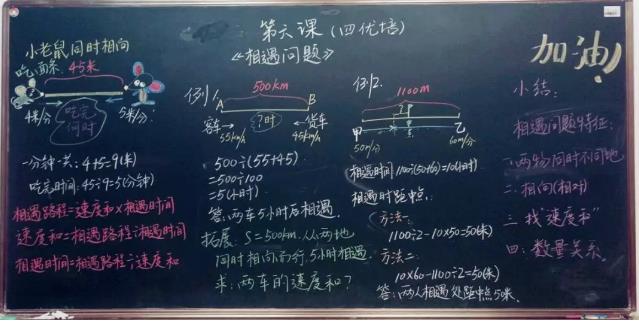 第六课(四优培)
《相遇问题》
加油!
小老鼠同时相向
吃面条. 45米
4米/分 5米/分
吃完何时
一分钟一共: 4+5=9(米)
吃完时间: 45÷9=5(分钟)
相遇路程=速度和×相遇时间
速度和=相遇路程÷相遇时间
相遇时间=相遇路程÷速度和
例1.
500km
A B
客车→ ?时 ←货车
55km/h 45km/h
500÷(55+45)
=500÷100
=5(小时)
答:两车5小时后相遇.
拓展: S=500km.从两地
同时相向而行.5小时相遇.
求:两车的速度和?
例2.
1100m
甲 乙
50m/分 60m/分
相遇时间 1100÷(50+60)=10(时)
相遇时距中点:
方法一:
1100÷2-10×50=50(米)
方法二:
10×60-1100÷2=50(米)
答:两人相遇处距中点50米.
小结:
相遇问题特征:
一:两物同时不同地
二.相向(相对)
三 找"速度和"
四:数量关系.